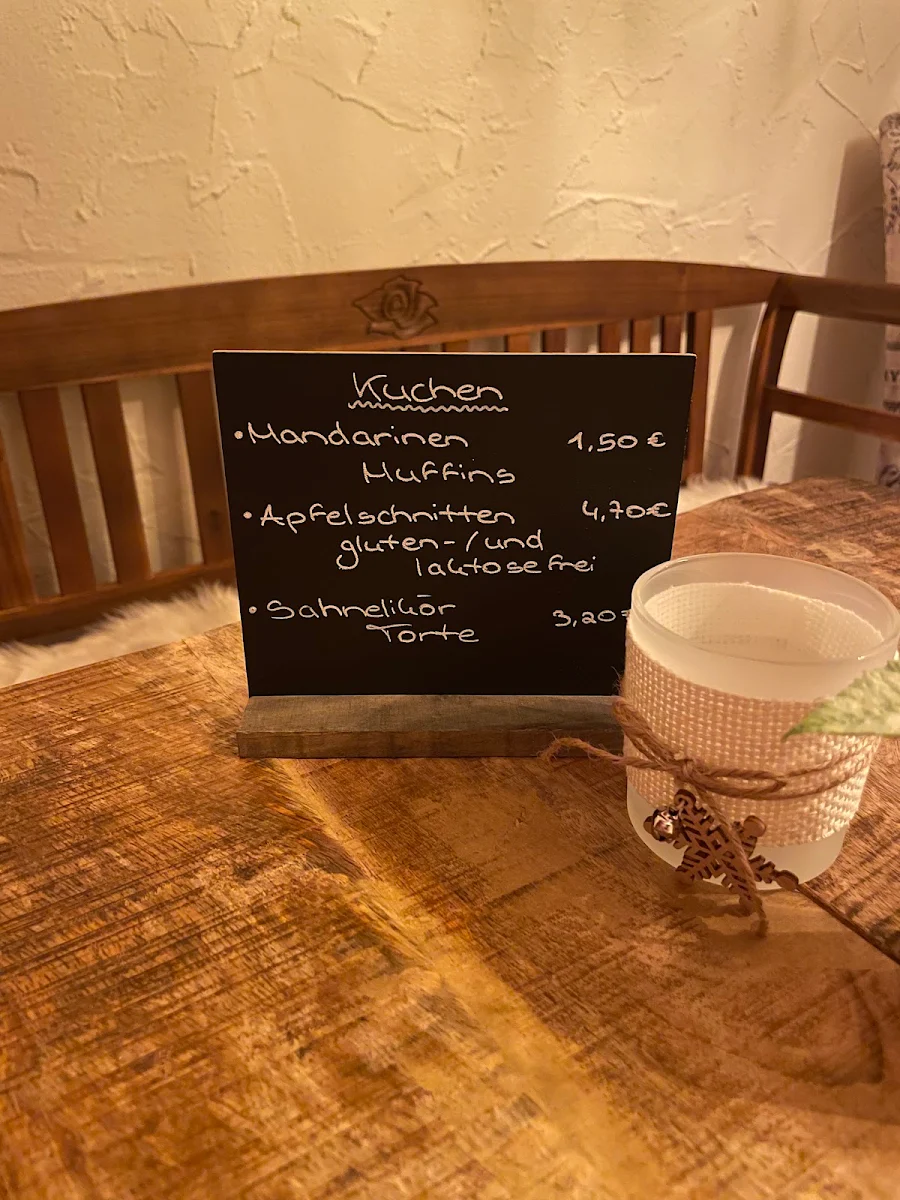 Kuchen
• Mandarinen 1,50 €
Muffins
• Apfelschnitten 4,70€
gluten-/und
laktosefrei
• Sahnelikör 3,20
Torte